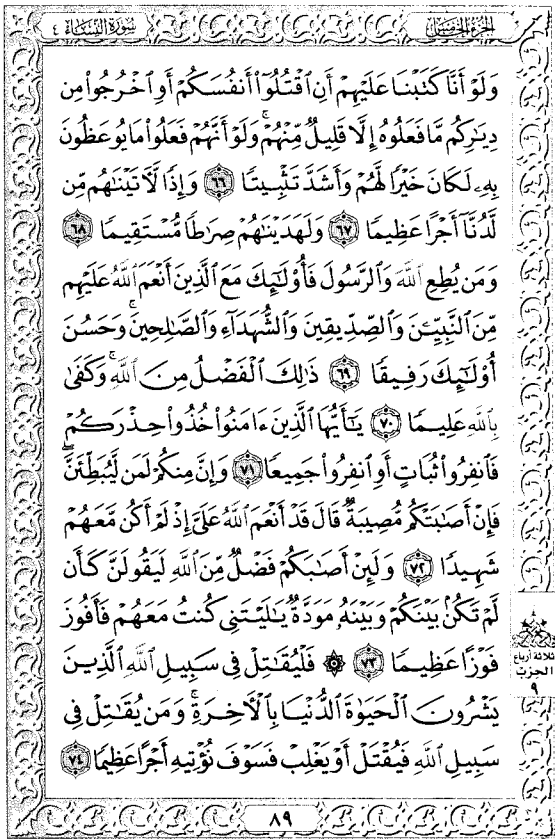 الجزء الخامس
سورة النساء ٤
وَلَوْ أَنَّا كَتَبْنَا عَلَيْهِمْ أَنِ ٱقْتُلُوٓا۟ أَنفُسَكُمْ أَوِ ٱخْرُجُوا۟ مِن
دِيَٰرِكُم مَّا فَعَلُوهُ إِلَّا قَلِيلٌ مِّنْهُمْ ۖ وَلَوْ أَنَّهُمْ فَعَلُوا۟ مَا يُوعَظُونَ
بِهِۦ لَكَانَ خَيْرًا لَّهُمْ وَأَشَدَّ تَثْبِيتًا ٦٦ وَإِذًا لَّـَٔاتَيْنَٰهُم مِّن
لَّدُنَّآ أَجْرًا عَظِيمًا ٦٧ وَلَهَدَيْنَٰهُمْ صِرَٰطًا مُّسْتَقِيمًا ٦٨
وَمَن يُطِعِ ٱللَّهَ وَٱلرَّسُولَ فَأُو۟لَٰٓئِكَ مَعَ ٱلَّذِينَ أَنْعَمَ ٱللَّهُ عَلَيْهِم
مِّنَ ٱلنَّبِيِّـۧنَ وَٱلصِّدِّيقِينَ وَٱلشُّهَدَآءِ وَٱلصَّٰلِحِينَ ۚ وَحَسُنَ
أُو۟لَٰٓئِكَ رَفِيقًا ٦٩ ذَٰلِكَ ٱلْفَضْلُ مِنَ ٱللَّهِ ۚ وَكَفَىٰ
بِٱللَّهِ عَلِيمًا ٧٠ يَٰٓأَيُّهَا ٱلَّذِينَ ءَامَنُوا۟ خُذُوا۟ حِذْرَكُمْ
فَٱنفِرُوا۟ ثُبَاتٍ أَوِ ٱنفِرُوا۟ جَمِيعًا ٧١ وَإِنَّ مِنكُمْ لَمَن لَّيُبَطِّئَنَّ ۖ
فَإِنْ أَصَٰبَتْكُم مُّصِيبَةٌ قَالَ قَدْ أَنْعَمَ ٱللَّهُ عَلَىَّ إِذْ لَمْ أَكُن مَّعَهُمْ
شَهِيدًا ٧٢ وَلَئِنْ أَصَٰبَكُمْ فَضْلٌ مِّنَ ٱللَّهِ لَيَقُولَنَّ كَأَن
لَّمْ تَكُنۢ بَيْنَكُمْ وَبَيْنَهُۥ مَوَدَّةٌ يَٰلَيْتَنِى كُنتُ مَعَهُمْ فَأَفُوزَ
فَوْزًا عَظِيمًا ٧٣ ۞ فَلْيُقَٰتِلْ فِى سَبِيلِ ٱللَّهِ ٱلَّذِينَ
يَشْرُونَ ٱلْحَيَوٰةَ ٱلدُّنْيَا بِٱلْءَاخِرَةِ ۚ وَمَن يُقَٰتِلْ فِى
سَبِيلِ ٱللَّهِ فَيُقْتَلْ أَوْ يَغْلِبْ فَسَوْفَ نُؤْتِيهِ أَجْرًا عَظِيمًا ٧٤
ثلاثة أرباع
الحزب
٩
٨٩